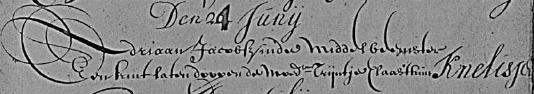 Den 24 Junij
Adriaan Jacobsz in de Middel beemster
Een kint laten doopen de moedr Trijntje Claas kint Knelisje